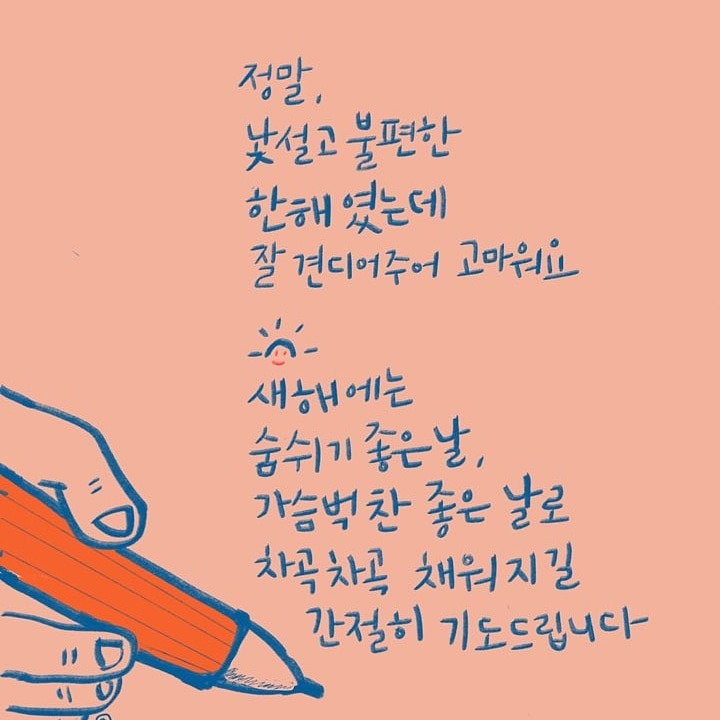 정말,
낯설고 불편한
한해 였는데
잘 견디어주어 고마워요
새해에는
숨쉬기 좋은날,
가슴벅찬 좋은 날로
차곡차곡 채워지길
간절히 기도드립니다